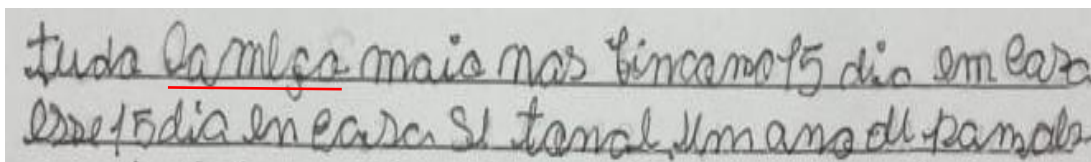 tudo comesa maio nos ficamo 15 dia em casa
esse 15 dia em casa si tonol um ano di pamde